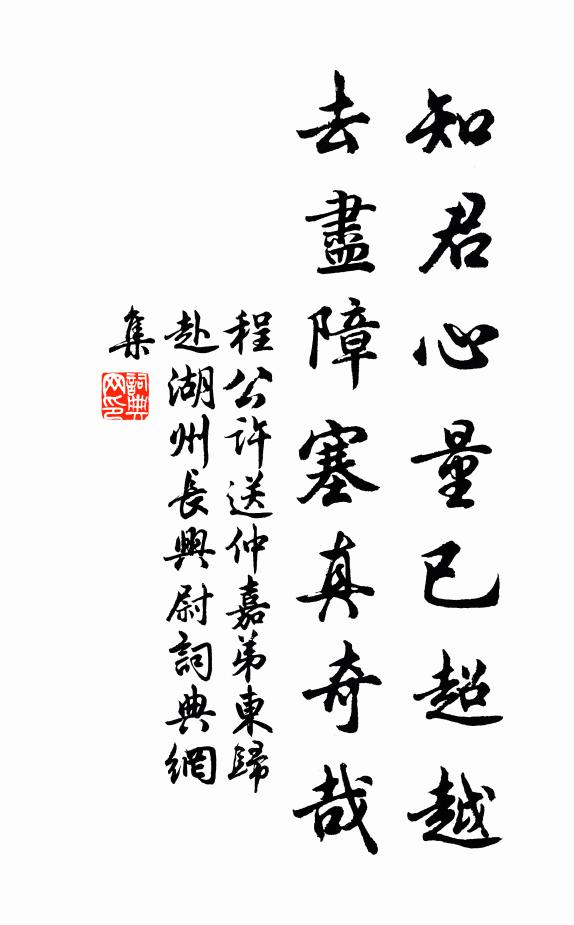 知君心量已超越
去盡障塞真奇哉
程公許送仲嘉弟東歸
赴湖州長興尉詞典網
集
詞典
网印